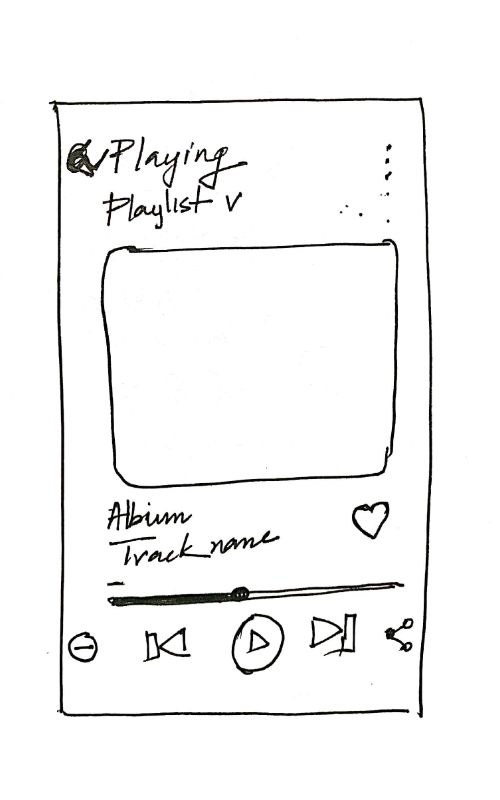 Playing
Playlist v
Album
Track name